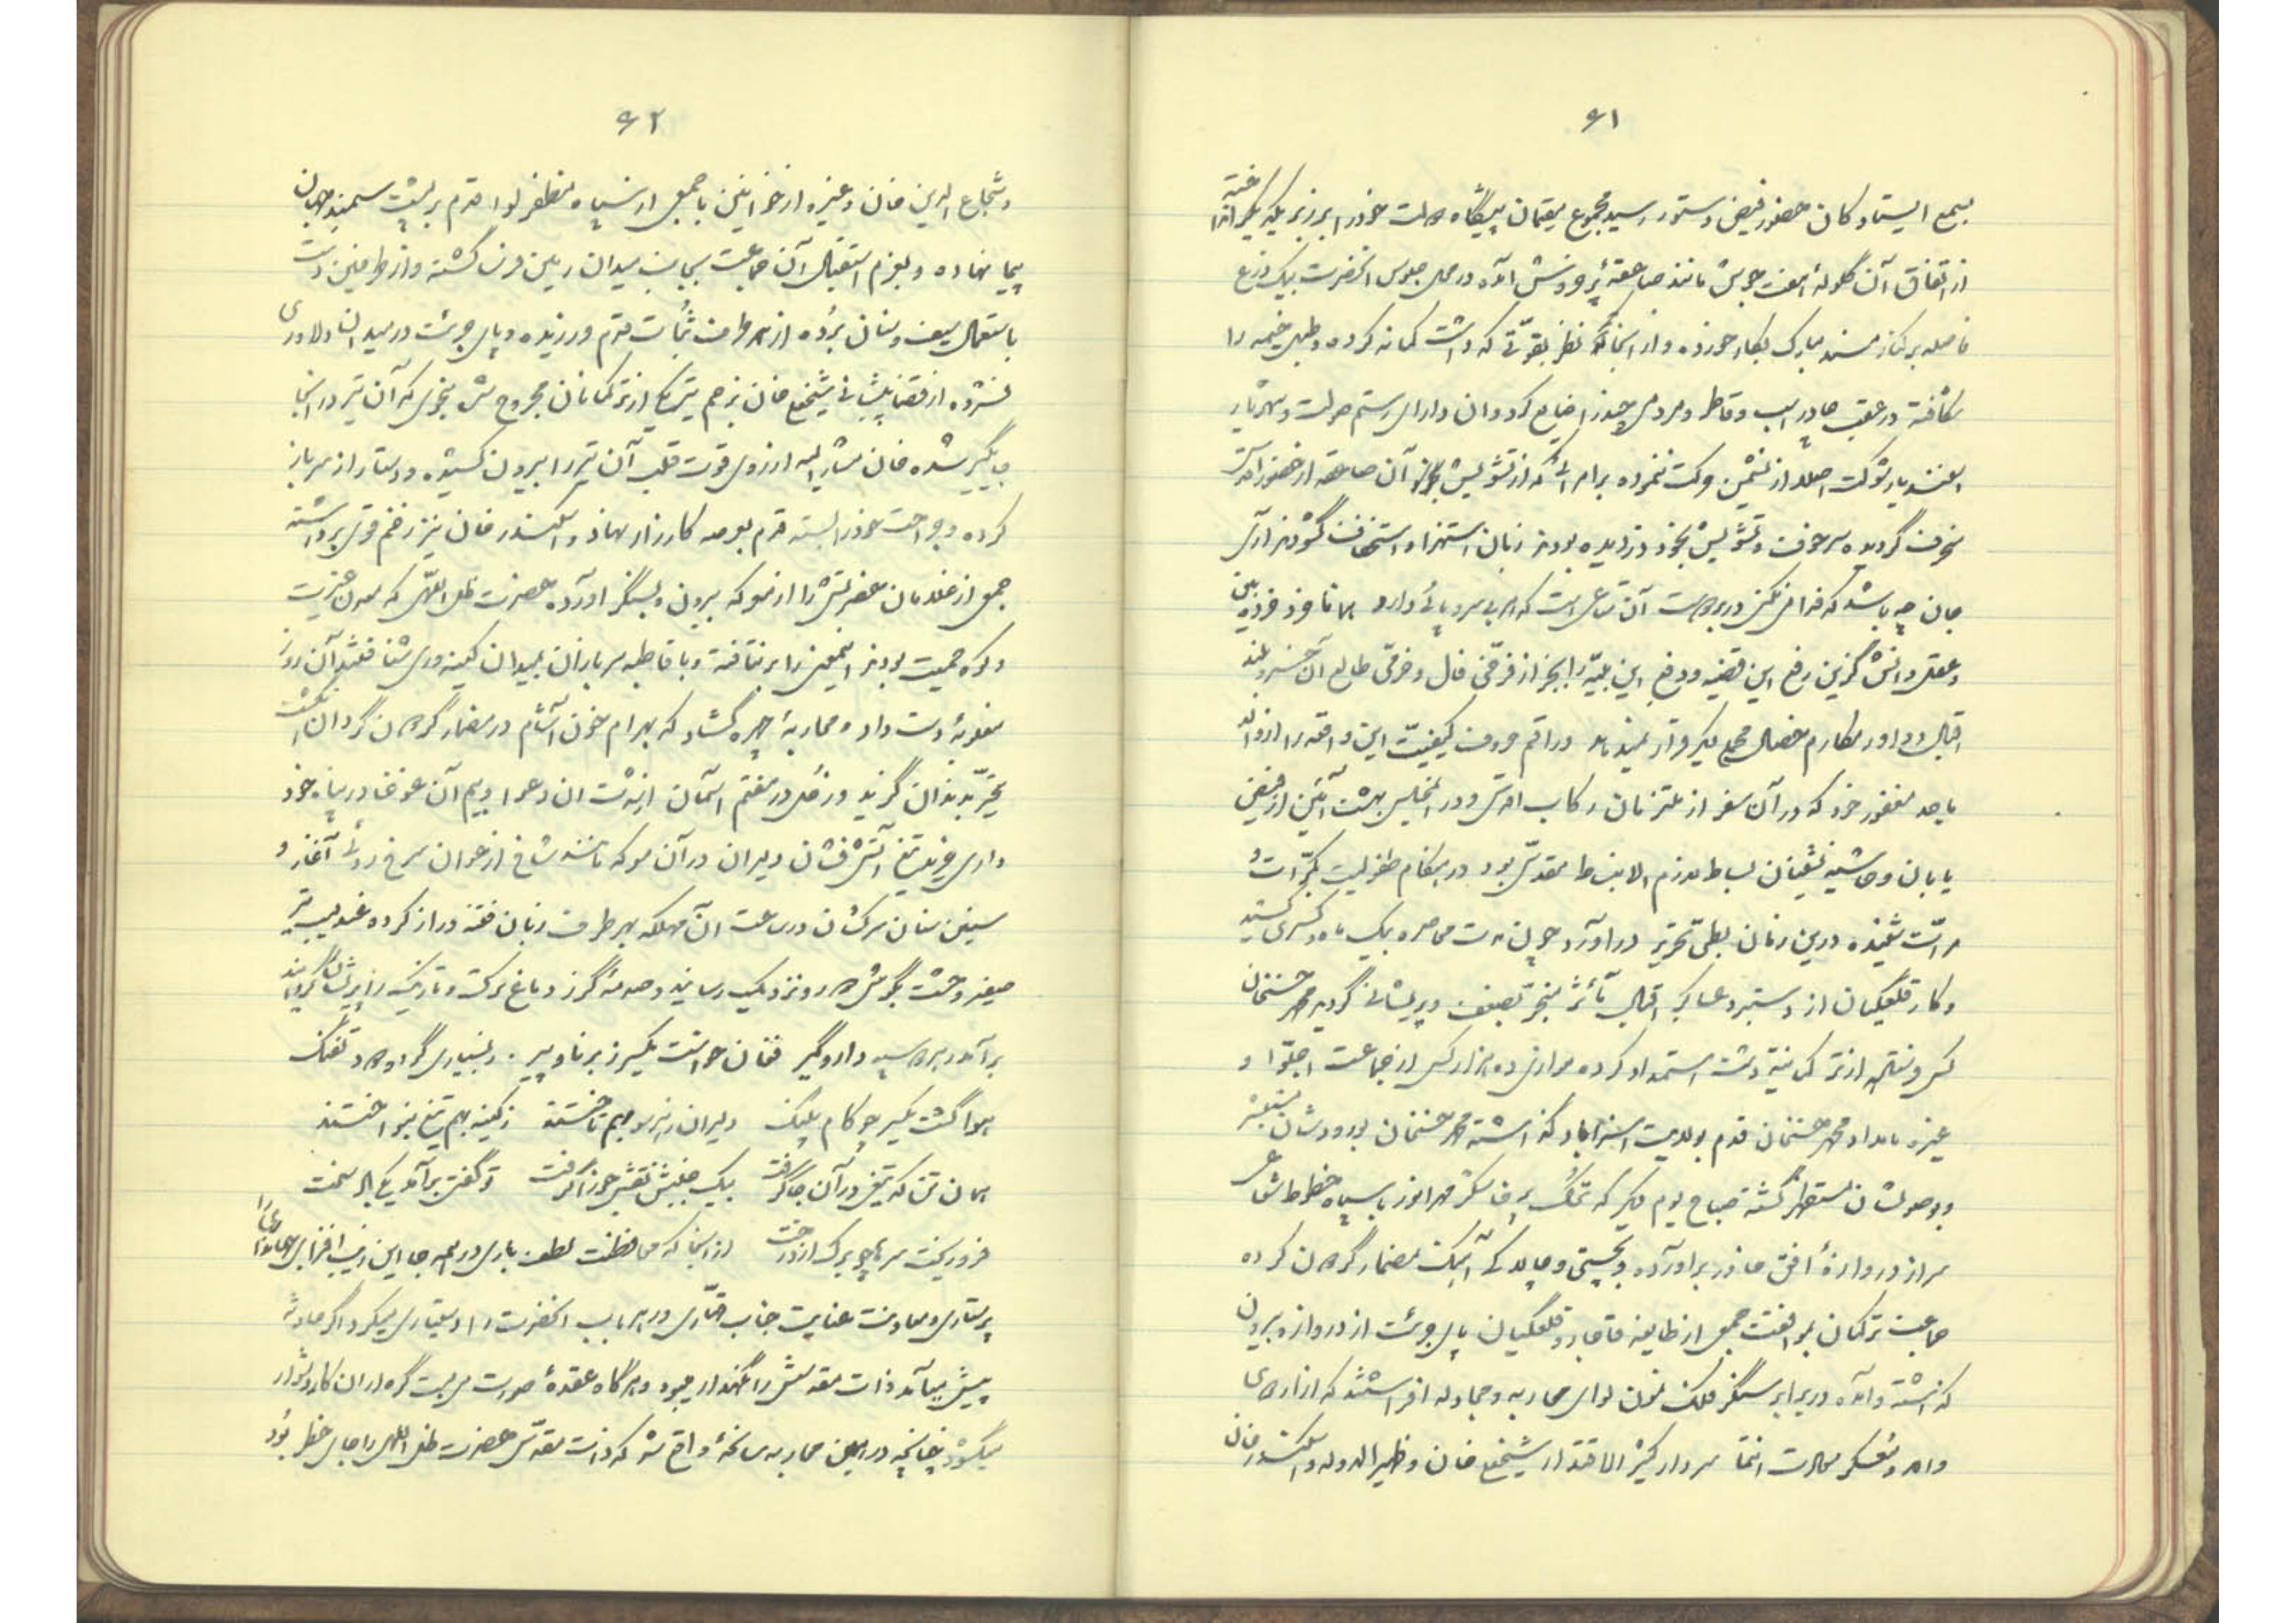 ۶۱
بسمع ایستادگان حضور فیض دستور رسید مجموع مقیمان پیشگاه صولت خود را بر زبر یکدیگر انداخته
از اتفاق آن گلوله مانند صاعقه پر خروش آمده در محل جلوس آنحضرت بیک ذرع
فاصله بر کنار مسند مبارک بکار خورده و از آنجا نظر بقوتی که داشت کمانه کرده و طبل خیمه را
شکافته در عقب چادر اسب و قاطر و مردمی چند را ضایع کرد و آن دارای رستم صولت و شهریار
اسفندیار شوکت اصلا از نشیمن حرکت ننموده بامرائی که از تشویش آن صاعقه از حضور اقدس
منحرف گردیده سر خوف و تشویش بخود دزدیده بودند زبان استهزا و استخفاف گشودند آری
جان چه باشد که
و عقل دانش گزین رفع این قضیه و دفع این بلیه را بجز از فرخی فال و خرمی طالع آن خسرو بلند
اقبال و داور مکارم خصال محمع دیگر قرار نمیدهد و راقم حروف کیفیت این واقعه را از والد
ماجد مغفور خود که در آن سفر از ملتزمان رکاب اقدس و در مجلس بهشت آئین از فیض
یابان و حاشیه نشینان بساط لازم الانبساط مقدس بود در هنگام طفولیت بکرات و
مرات شنیده درین زمان بطی تحریر درآورد چون مدت محاصره بیک ماه و کسری کشید
و کار قلعگیان از دستبرد عساکر اقبال تأثر منجر بضعف و پریشانی گردید محمد حسنخان
کس فرستاده از ترکمانیه دشت استمداد کرده موازی ده هزار کس از جماعت
غیره بامداد محمد حسنخان قدم بولایت استراباد گذاشته محمد حسنخان بورودشان مستبشر
و بوصولشان مستظهر گشته صباح یوم دیگر که ترک مهر انور با سپاه خطوط شعاعی
سر از دروازه افق خاور برآورده و بچستی و چالاکی آهنگ مضمار گردون کرده
جماعت ترکمان بموافقت جمعی از طایفه قاجار و قلعگیان پای جرئت از دروازه بیرون
گذاشته و آمده در برابر سنگر فلک نمون لوای محاربه و مجادله افراشتند که از اردوی
والا و معسکر سردار کثیر الاقتدار شیخعلی خان و ظهیر الدوله و اسکندر خان
۶۲
و شجاع الدین خان و غیره از خوانین با جمعی از سپاه مظفر لوا قدم بر پشت سمند جهان
پیما نهاده و بعزم استقبال آن جماعت بجانب میدان رهین حرف گشته و از طرفین دست
باستعمال سیف و سنان برده از هر طرف ثبات قدم ورزیده و پای جرئت در میدان دلاوری
فشرده از قضا پیشانی شیخعلی خان بزخم تیر یکی از ترکمانان مجروح شد بنحوی که آن تیر در آنجا
جایگیر شده خان مشار الیه از روی قوت قلب آن تیر را بیرون کشیده و دستار از سر باز
کرده و جراحت خود را بسته قدم بعرصه کارزار نهاد و اسکندر خان نیز زخم قوی برداشته
جمعی از غلامان حضرتش را از معرکه بیرون و بسنگر آورده حضرت ظل اللهی که معدن غیرت
و کوه حمیت بودند اینمعنی را برنتافته و با قاطبه سربازان بمیدان کینه وری شتافتند آن روز
مغلوبه دست داد و محاربه چهره گشاد که بهرام خون آشام در مضمار گردون گردان انگشت
تحیر بدندان گزید و زحل در هفتم آسمان از دهشت آن دعوا و بیم آن غوغا در پناه خود
داری خزید تیغ آتش فشان دلیران در آن معرکه مانند شاخ ارغوان سرخ روئی آغاز و
سنین سنان سرکشان در ساعت آن مهلکه بهر طرف زبان فتنه دراز کرده عندلیب تیر
صفیر وحشت بگوش دور و نزدیک رسانید و صدمه گرز دماغ ترک و تاجیک را پریشان گردانید
برآمد ز هر سپه دار و گیر فغان خواست یکسر ز برنا و پیر ز بسیاری گرد و دود تفنگ
هوا گشت یکسر چو کام پلنگ دلیران ز هر سو بهم تاختند ز کینه بهم تیغ بنواختند
همان تن که تیغی در آن جا گرفت بیک جنبشش نقش جوزا گرفت تو گفتی برآمد یکی باد سخت
فرو ریخت سرها چو برگ از درخت از آنجا که محافظت لطف باری در همه جا این زیب افزای
پرستاری و معاونت عنایت جناب قادری در هر باب آنحضرت را دستیاری میکرد اگر حادثه
پیش میآمد ذات مقدسش را نگهدار میبود و هرگاه عقده صورت می بست گره از آن کار دشوار
میگشود چنانچه در همین محاربه سانحه واقع شد که ذات مقدس حضرت ظل اللهی را جای خطر بود